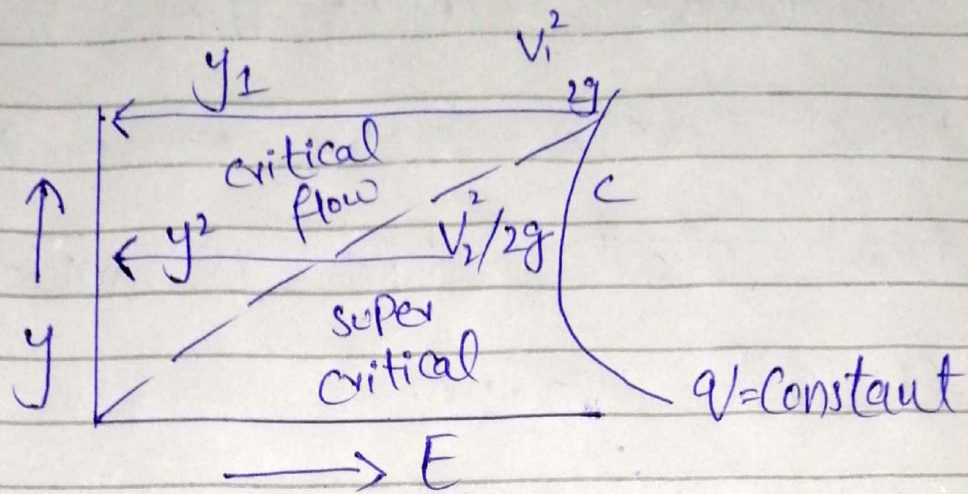 V₁²
2g
y1
critical
flow
C
y²
V₂²/2g
y
super
critical
q=Constant
E